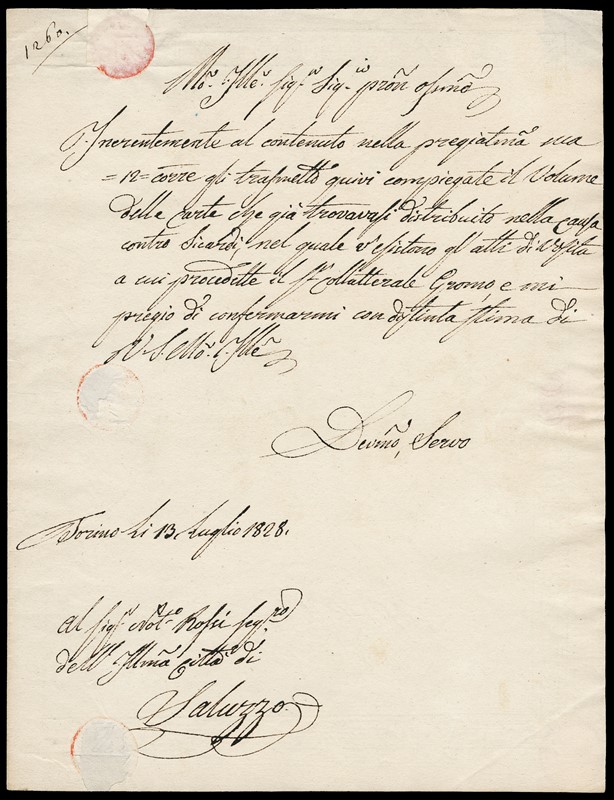 1260.
Mto. Illre. Sigr. Sigr. prōn osmō
Inerentemente al contenuto nella pregiatmā sua
=12= corre gli trasmetto quivi compiegato il Volume
delle Carte che già trovavasi distribuito nella Causa
contro Sicardi, nel quale v'esistono gl'atti di Visita
a cui procedette il Sr. Collatterale Gromo, e mi
pregio di confermarmi con distinta stima di
V. S. Mto. Illre.
Devmō, Servo
Torino Li 13 Luglio 1828.
Al Sigr. Not.o Rossi Seg.ro
dell' Illmā Città di
Saluzzo